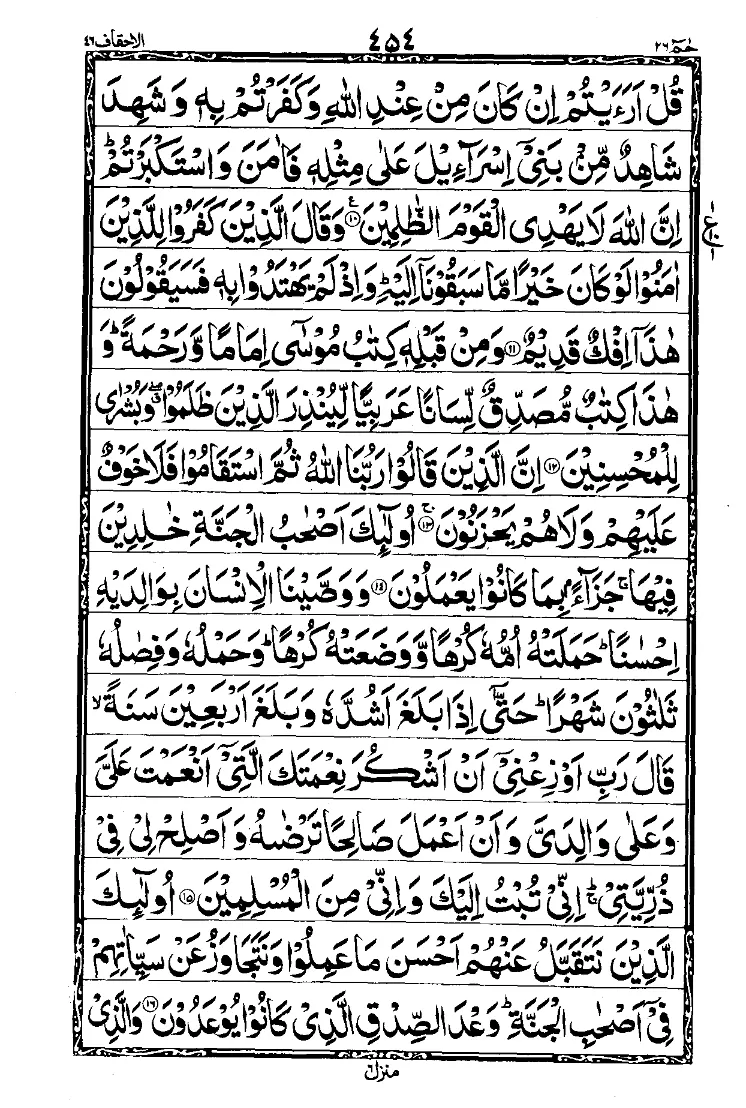 حٰمٓ ٢٦ ٤٥٤ الاحقاف ٤٦
قُلْ اَرَءَيْتُمْ اِنْ كَانَ مِنْ عِنْدِ اللّٰهِ وَكَفَرْتُمْ بِهٖ وَ شَهِدَ
شَاهِدٌ مِّنْۢ بَنِيْٓ اِسْرَآءِيْلَ عَلٰى مِثْلِهٖ فَاٰمَنَ وَ اسْتَكْبَرْتُمْ ؕ
اِنَّ اللّٰهَ لَا يَهْدِى الْقَوْمَ الظّٰلِمِيْنَ ۧ ﴿١٠﴾ وَقَالَ الَّذِيْنَ كَفَرُوْا لِلَّذِيْنَ
اٰمَنُوْا لَوْ كَانَ خَيْرًا مَّا سَبَقُوْنَاۤ اِلَيْهِ ؕ وَ اِذْ لَمْ يَهْتَدُوْا بِهٖ فَسَيَقُوْلُوْنَ
هٰذَاۤ اِفْكٌ قَدِيْمٌ ﴿١١﴾ وَمِنْ قَبْلِهٖ كِتٰبُ مُوْسٰٓى اِمَامًا وَّ رَحْمَةً ؕ وَ
هٰذَا كِتٰبٌ مُّصَدِّقٌ لِّسَانًا عَرَبِيًّا لِّيُنْذِرَ الَّذِيْنَ ظَلَمُوْا ۖۗ وَ بُشْرٰى
لِلْمُحْسِنِيْنَ ﴿١٢﴾ اِنَّ الَّذِيْنَ قَالُوْا رَبُّنَا اللّٰهُ ثُمَّ اسْتَقَامُوْا فَلَا خَوْفٌ
عَلَيْهِمْ وَ لَا هُمْ يَحْزَنُوْنَ ۚ ﴿١٣﴾ اُولٰٓئِكَ اَصْحٰبُ الْجَنَّةِ خٰلِدِيْنَ
فِيْهَا ۚ جَزَآءًۢ بِمَا كَانُوْا يَعْمَلُوْنَ ﴿١٤﴾ وَ وَصَّيْنَا الْاِنْسَانَ بِوَالِدَيْهِ
اِحْسٰنًا ؕ حَمَلَتْهُ اُمُّهٗ كُرْهًا وَّ وَضَعَتْهُ كُرْهًا ؕ وَ حَمْلُهٗ وَ فِصٰلُهٗ
ثَلٰثُوْنَ شَهْرًا ؕ حَتّٰٓى اِذَا بَلَغَ اَشُدَّهٗ وَ بَلَغَ اَرْبَعِيْنَ سَنَةً ۙ
قَالَ رَبِّ اَوْزِعْنِيْٓ اَنْ اَشْكُرَ نِعْمَتَكَ الَّتِيْٓ اَنْعَمْتَ عَلَيَّ
وَ عَلٰى وَالِدَيَّ وَ اَنْ اَعْمَلَ صَالِحًا تَرْضٰىهُ وَ اَصْلِحْ لِيْ فِيْ
ذُرِّيَّتِيْ ۚؕ اِنِّيْ تُبْتُ اِلَيْكَ وَ اِنِّيْ مِنَ الْمُسْلِمِيْنَ ﴿١٥﴾ اُولٰٓئِكَ
الَّذِيْنَ نَتَقَبَّلُ عَنْهُمْ اَحْسَنَ مَا عَمِلُوْا وَ نَتَجَاوَزُ عَنْ سَيِّاٰتِهِمْ
فِيْٓ اَصْحٰبِ الْجَنَّةِ ؕ وَعْدَ الصِّدْقِ الَّذِيْ كَانُوْا يُوْعَدُوْنَ ﴿١٦﴾ وَ الَّذِيْ
منزل ٦